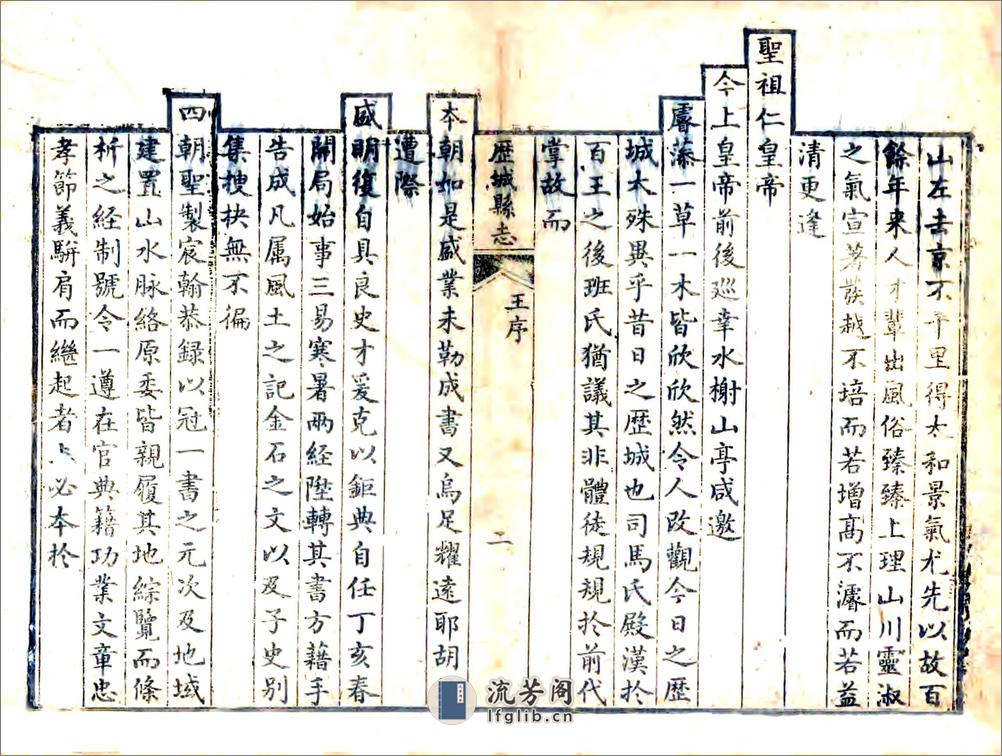 山左去京不千里得太和景氣尤先以故百
餘年來人才輩出風俗臻臻上理山川靈淑
之氣宣著發越不培而若增髙不濬而若益
清更逢
聖祖仁皇帝
今上皇帝前後巡幸水榭山亭咸邀
睿藻一草一木皆欣欣然令人改觀今日之歷
城大殊異乎昔日之歷城也司馬氏殿漢於
百王之後班氏猶議其非體徒規規於前代
掌故而
歷城縣志
王序
二
本朝如是盛業未勒成書又烏足耀遠耶胡
遭際
盛明復自具良史才爰克以鉅典自任丁亥春
開局始事三易寒暑兩經陞轉其書方藉手
告成凡属風土之記金石之文以及子史别
集搜抉無不徧
四朝聖製宸翰恭録以冠一書之元次及地域
建置山水脉絡原委皆親履其地綜覽而條
析之經制號令一遵在官典籍功業文章忠
孝節義駢肩而繼起者上必本於
流芳阁
lfglib.cn